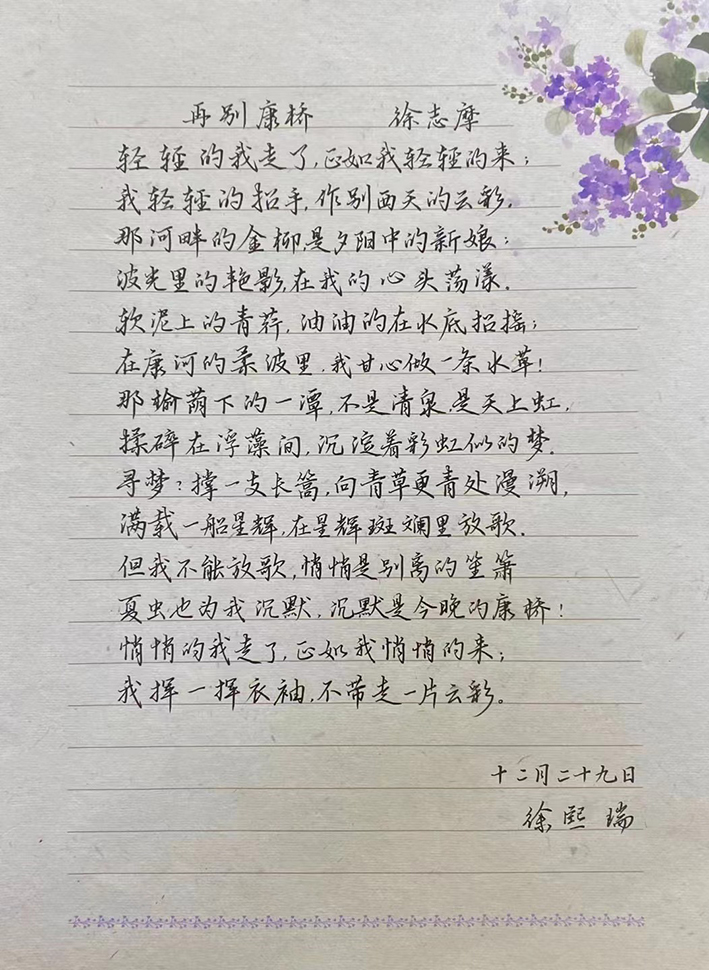 再别康桥 徐志摩
轻轻的我走了,正如我轻轻的来;
我轻轻的招手,作别西天的云彩.
那河畔的金柳,是夕阳中的新娘;
波光里的艳影,在我的心头荡漾.
软泥上的青荇,油油的在水底招摇;
在康河的柔波里,我甘心做一条水草!
那榆荫下的一潭,不是清泉,是天上虹,
揉碎在浮藻间,沉淀着彩虹似的梦.
寻梦?撑一支长篙,向青草更青处漫溯,
满载一船星辉,在星辉斑斓里放歌.
但我不能放歌,悄悄是别离的笙箫
夏虫也为我沉默,沉默是今晚的康桥!
悄悄的我走了,正如我悄悄的来;
我挥一挥衣袖,不带走一片云彩。
十二月二十九日
徐熙瑞